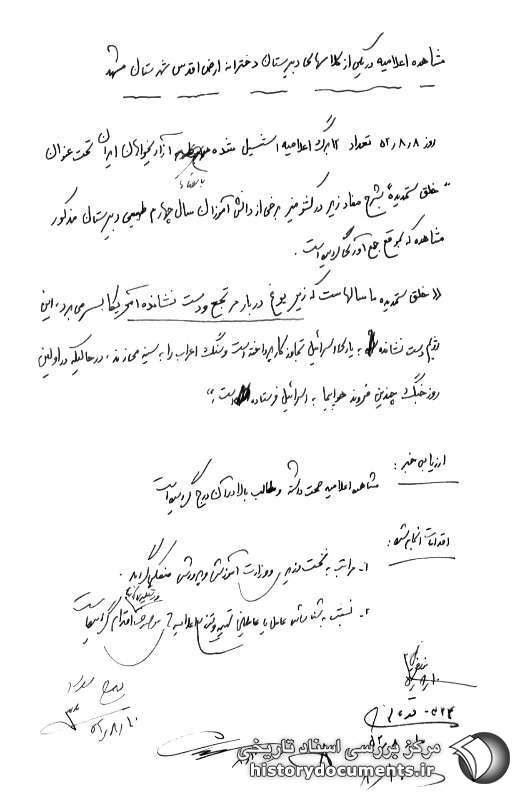 مشاهده اعلامیه در یکی از کلاسهای دبیرستان دخترانه ارض اقدس شهرستان مشهد
روز ۵۲٫۸٫۸ تعداد ۱۲ برگ اعلامیه استنسیل شده آزادیخواهان ایران تحت عنوان
با امضاء
"خلق ستمدیده" بشرح مفاد زیر در کشو میز برخی از دانش آموزان سال چهارم طبیعی دبیرستان مذکور
مشاهده که بموقع جمع آوری گردیده است .
«خلق ستمدیده ما سالهاست که زیر یوغ دربار مرتجع و دست نشانده آمریکا بسر می‌برد، این
رژیم دست نشانده به یاری اسرائیل تجاوزکار پرداخته است و سنگ اعراب را به سینه میزند، در حالیکه در اولین
روز جنگ چندین فروند هواپیما به اسرائیل فرستاده است.»
ارزیابی خبر :
مشاهده اعلامیه صحت داشته و مطالب بالا در آن درج گردیده است
اقدامات انجام شده :
۱- مراتب به نخست وزیری و وزارت آموزش و پرورش منعکس گردید .
۲- نسبت به شناسائی عامل یا عاملین تهیه و توزیع اعلامیه اقدام گردیده است
۵۲٫۸٫۱۰
مرکز بررسی اسناد تاریخی
historydocuments.ir